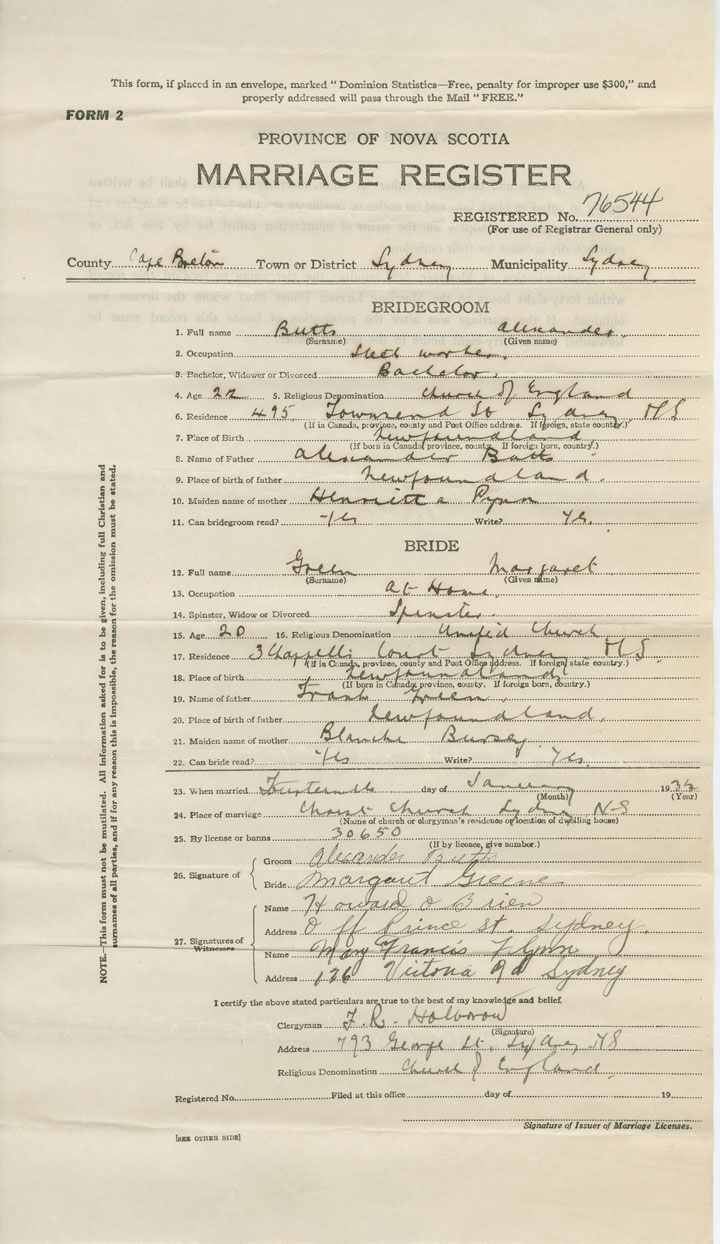 This form, if placed in an envelope, marked "Dominion Statistics—Free, penalty for improper use $300," and
properly addressed will pass through the Mail "FREE."
FORM 2
PROVINCE OF NOVA SCOTIA
MARRIAGE REGISTER
REGISTERED No. 76544
(For use of Registrar General only)
County Cape Breton Town or District Sydney Municipality Sydney
BRIDEGROOM
1. Full name Butts Alexander
(Surname) (Given name)
2. Occupation Steel worker
3. Bachelor, Widower or Divorced Bachelor
4. Age 22 5. Religious Denomination Church of England
6. Residence 495 Townsend St Sydney N S
(If in Canada, province, county and Post Office address. If foreign, state country.)
7. Place of Birth Newfoundland
(If born in Canada, province, county. If foreign born, country.)
8. Name of Father Alexander Butts
9. Place of birth of father Newfoundland.
10. Maiden name of mother Henrietta Pynn
11. Can bridegroom read? Yes Write? Yes.
BRIDE
12. Full name Green Margaret
(Surname) (Given name)
13. Occupation At Home.
14. Spinster, Widow or Divorced Spinster
15. Age 20 16. Religious Denomination United Church
17. Residence 3 Court Sydney N S.
(If in Canada, province, county and Post Office address. If foreign, state country.)
18. Place of birth Newfoundland
(If born in Canada, province, county. If foreign born, country.)
19. Name of father Frank Green
20. Place of birth of father Newfoundland.
21. Maiden name of mother Blanche Bursey
22. Can bride read? Yes Write? Yes.
23. When married Fourteenth day of January 19
(Month) (Year)
24. Place of marriage Christ Church Sydney N-S
(Name of church or clergyman's residence or location of dwelling house)
25. By license or banns 30650
(If by licence, give number.)
26. Signature of
Groom Alexander Butts
Bride Margaret Greene
27. Signatures of Witnesses
Name Howard O Brien
Address Off Prince St. Sydney.
Name Mary Francis Flynn
Address 126 Victoria Rd Sydney
I certify the above stated particulars are true to the best of my knowledge and belief.
Clergyman F. R. Holbrow
(Signature)
Address 793 George St. Sydney NS
Religious Denomination Church of England.
Registered No. Filed at this office day of 19
Signature of Issuer of Marriage Licenses.
[SEE OTHER SIDE]
NOTE.—This form must not be mutilated. All information asked for is to be given, including full Christian and
surnames of all parties, and if for any reason this is impossible, the reason for the omission must be stated.